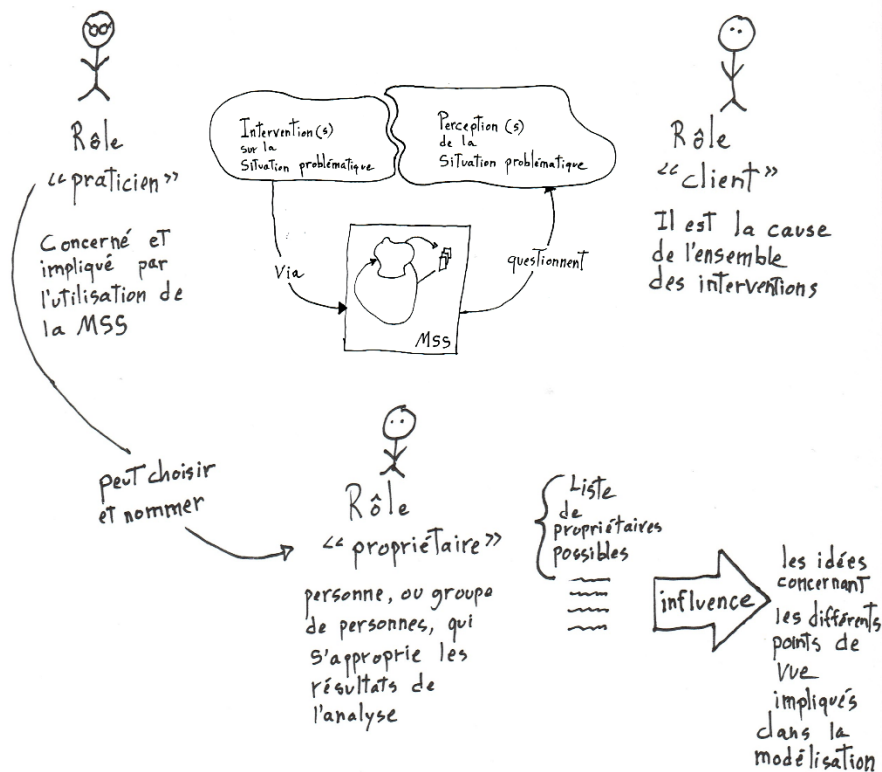 Rôle
"praticien"
Concerné et
impliqué par
l'utilisation de
la MSS
Intervention(s)
sur la
Situation problématique
Perception(s)
de la
Situation problématique
Via
questionnent
MSS
Rôle
"client"
Il est la cause
de l'ensemble
des interventions
peut choisir
et nommer
Rôle
"propriétaire"
personne, ou groupe
de personnes, qui
s'approprie les
résultats de
l'analyse
Liste
de
propriétaires
possibles
influence
les idées
concernant
les différents
points de
vue
impliqués
dans la
modélisation